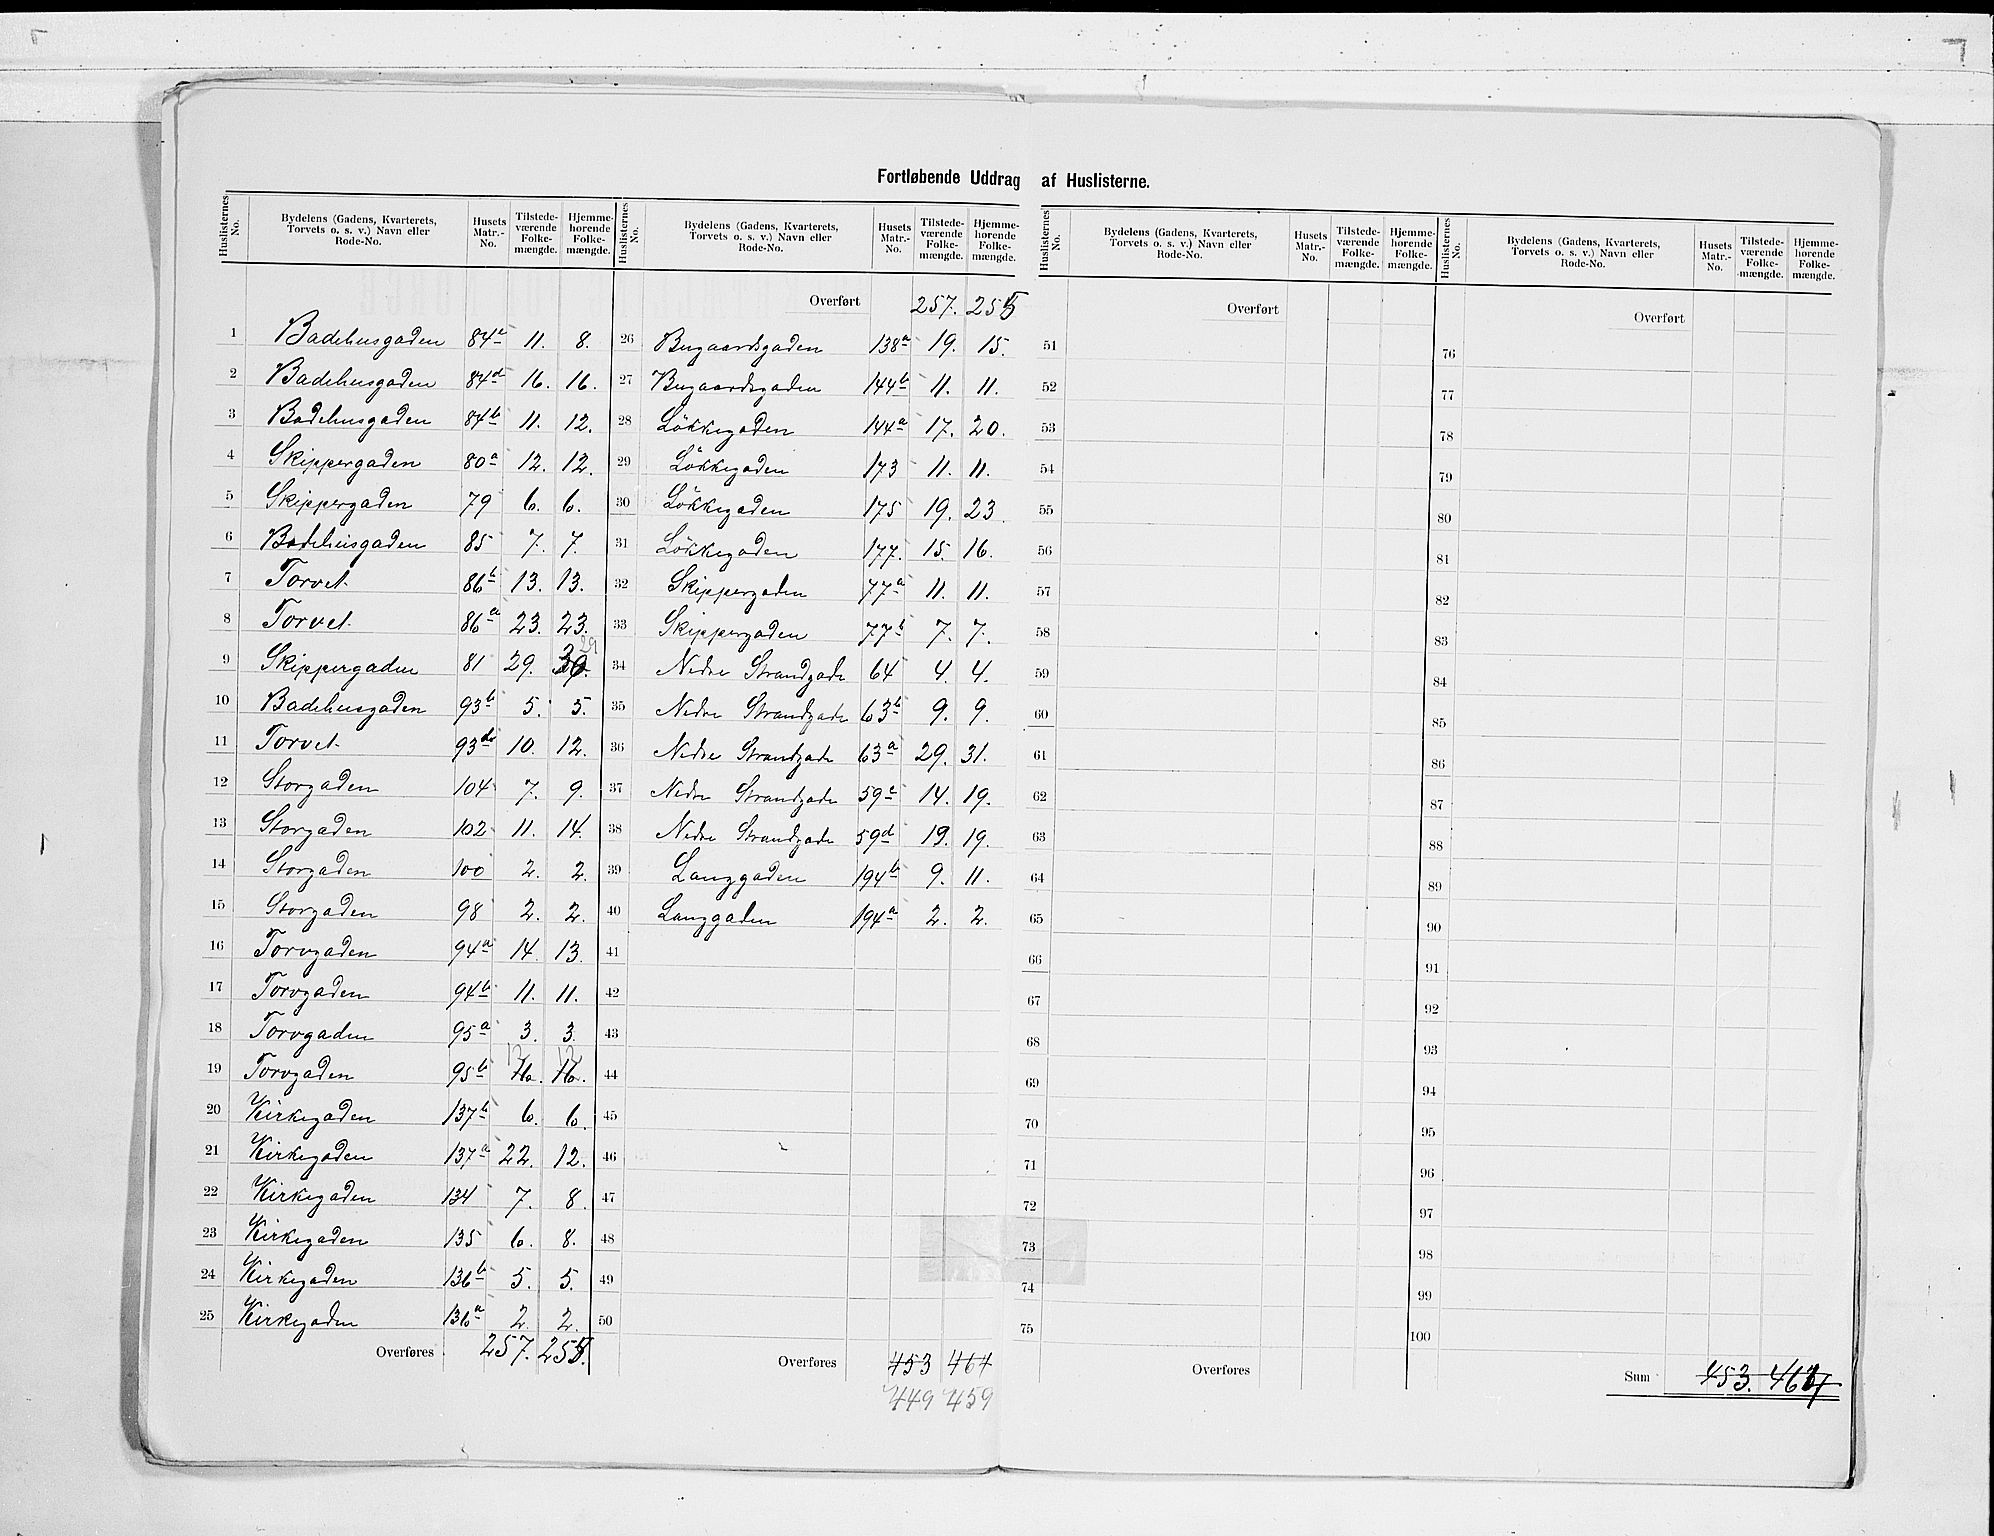 Fortløbende Uddrag af Huslisterne.
Huslisternes No. | Bydelens (Gadens, Kvarterets, Torvets o. s. v.) Navn eller Rode-No. | Husets Matr.-No. | Tilstedeværende Folkemængde. | Hjemmehørende Folkemængde.
1 Badehusgaden 84a 11. 8.
2 Badehusgaden 84d 16. 16.
3 Badehusgaden 84b 11. 12.
4 Skippergaden 80a 12. 12.
5 Skippergaden 79 6. 6.
6 Badehusgaden 85 7. 7.
7 Torvet 86b 13. 13.
8 Torvet 86a 23. 23.
9 Skippergaden 81 29. 30. 29
10 Badehusgaden 93b 5. 5.
11 Torvet 93 10. 12.
12 Storgaden 104 7. 9.
13 Storgaden 102 11. 14.
14 Storgaden 100 2. 2.
15 Storgaden 98 2. 2.
16 Torvgaden 94a 14. 13.
17 Torvgaden 94b 11. 11.
18 Torvgaden 95a 3. 3.
19 Torvgaden 95b 16. 16.
20 Kirkegaden 137b 6. 6.
21 Kirkegaden 137a 22. 12.
22 Kirkegaden 134 7. 8.
23 Kirkegaden 135 6. 8.
24 Kirkegaden 136b 5. 5.
25 Kirkegaden 136a 2. 2.
Overføres 257. 255.
Huslisternes No. | Bydelens (Gadens, Kvarterets, Torvets o. s. v.) Navn eller Rode-No. | Husets Matr.-No. | Tilstedeværende Folkemængde. | Hjemmehørende Folkemængde.
Overført 257. 255
26 Bugaardsgaden 138a 19. 15.
27 Bugaardsgaden 144b 11. 11.
28 Løkkegaden 144a 17. 20.
29 Løkkegaden 173 11. 11.
30 Løkkegaden 175 19. 23.
31 Løkkegaden 177. 15. 16.
32 Skippergaden 77a 11. 11.
33 Skippergaden 77b 7. 7.
34 Nedre Strandgade 64 4. 4.
35 Nedre Strandgade 63b 9. 9.
36 Nedre Strandgade 63a 29. 31.
37 Nedre Strandgade 59 14. 19.
38 Nedre Strandgade 59d 19. 19.
39 Langgaden 194b 9. 11.
40 Langgaden 194a 2. 2.
41
42
43
44
45
46
47
48
49
50
Overføres 453 464
449 459
Huslisternes No. | Bydelens (Gadens, Kvarterets, Torvets o. s. v.) Navn eller Rode-No. | Husets Matr.-No. | Tilstedeværende Folkemængde. | Hjemmehørende Folkemængde.
Overført
51
52
53
54
55
56
57
58
59
60
61
62
63
64
65
66
67
68
69
70
71
72
73
74
75
Overføres
Huslisternes No. | Bydelens (Gadens, Kvarterets, Torvets o. s. v.) Navn eller Rode-No. | Husets Matr.-No. | Tilstedeværende Folkemængde. | Hjemmehørende Folkemængde.
Overført
76
77
78
79
80
81
82
83
84
85
86
87
88
89
90
91
92
93
94
95
96
97
98
99
100
Sum 453. 464